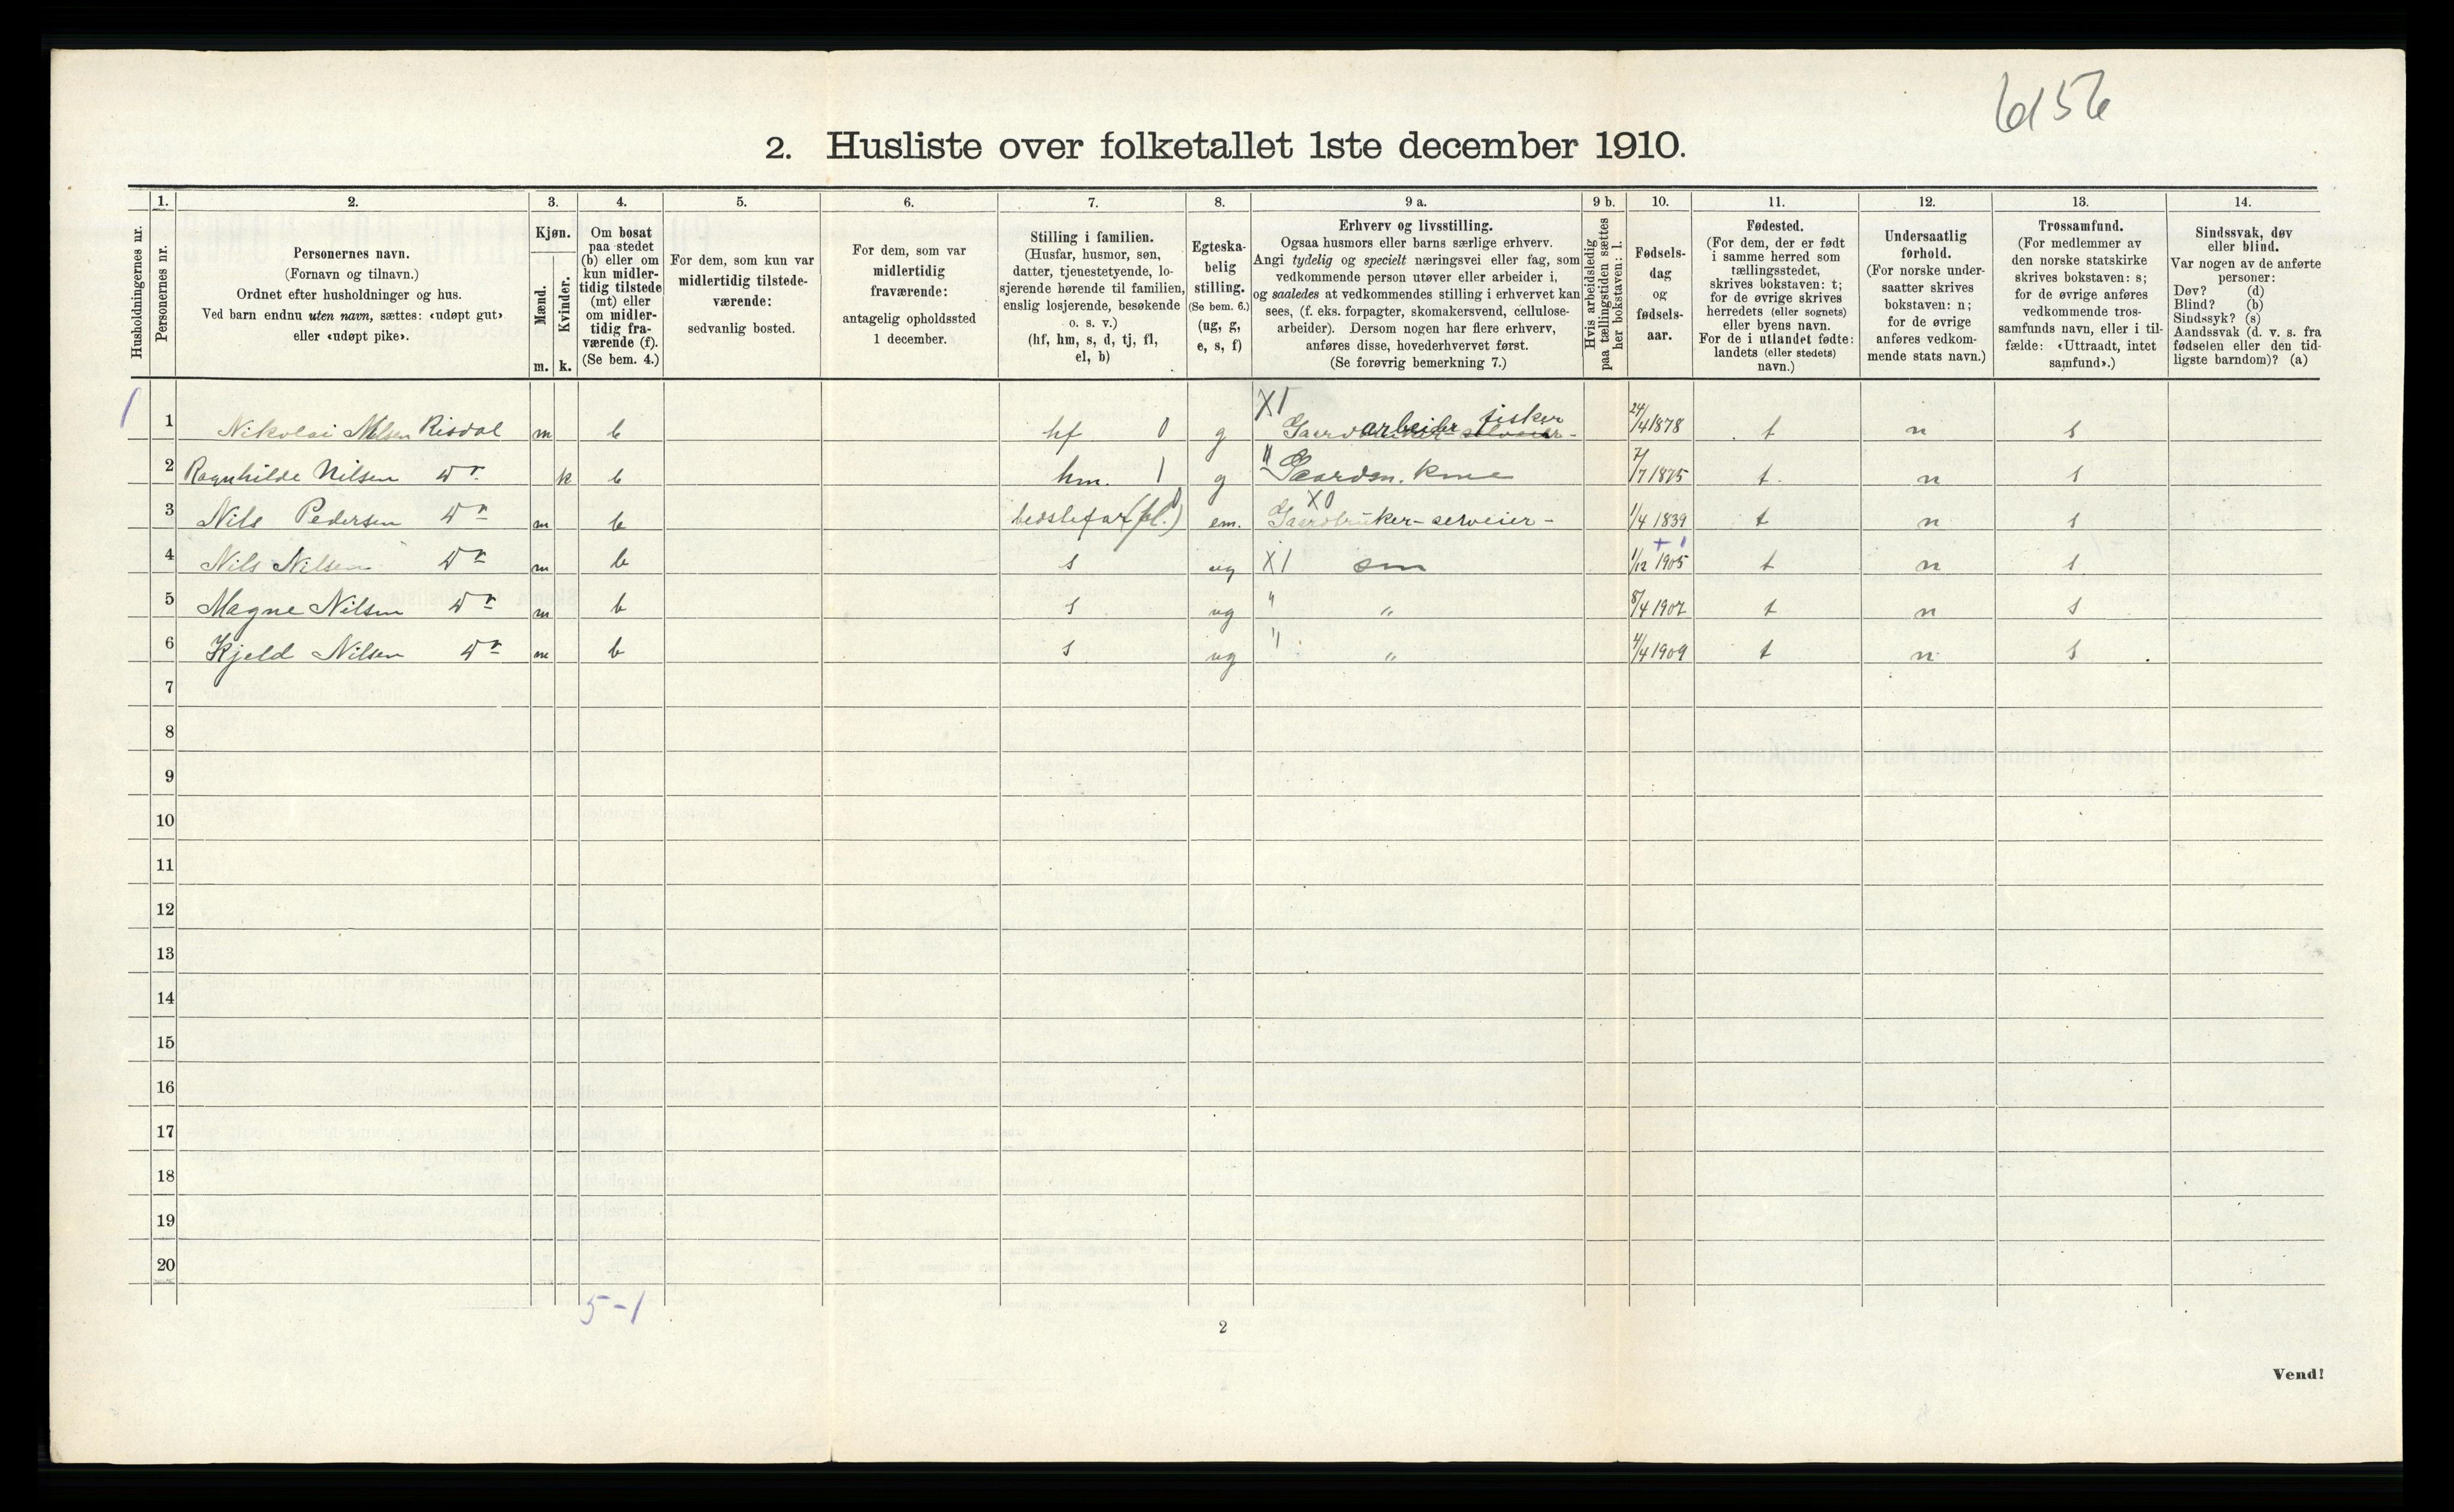 6156
2. Husliste over folketallet 1ste december 1910.
Husholdningernes nr.
1.
Personernes nr.
2.
Personernes navn.
(Fornavn og tilnavn.)
Ordnet efter husholdninger og hus.
Ved barn endnu uten navn, sættes: «udøpt gut»
eller «udøpt pike».
3.
Kjøn.
Mænd.
Kvinder.
m. k.
4.
Om bosat
paa stedet
(b) eller om
kun midler-
tidig tilstede
(mt) eller
om midler-
tidig fra-
værende (f).
(Se bem. 4.)
5.
For dem, som kun var
midlertidig tilstede-
værende:
sedvanlig bosted.
6.
For dem, som var
midlertidig
fraværende:
antagelig opholdssted
1 december.
7.
Stilling i familien.
(Husfar, husmor, søn,
datter, tjenestetyende, lo-
sjerende hørende til familien,
enslig losjerende, besøkende
o. s. v.)
(hf, hm, s, d, tj, fl,
el, b)
8.
Egteska-
belig
stilling.
(Se bem. 6.)
(ug, g,
e, s, f)
9 a.
Erhverv og livsstilling.
Ogsaa husmors eller barns særlige erhverv.
Angi tydelig og specielt næringsvei eller fag, som
vedkommende person utøver eller arbeider i,
og saaledes at vedkommendes stilling i erhvervet kan
sees, (f. eks. forpagter, skomakersvend, cellulose-
arbeider). Dersom nogen har flere erhverv,
anføres disse, hovederhvervet først.
(Se forøvrig bemerkning 7.)
9 b.
Hvis arbeidsledig
paa tællingstiden sættes
her bokstaven: l.
10.
Fødsels-
dag
og
fødsels-
aar.
11.
Fødested.
(For dem, der er født
i samme herred som
tællingsstedet,
skrives bokstaven: t;
for de øvrige skrives
herredets (eller sognets)
eller byens navn.
For de i utlandet fødte:
landets (eller stedets)
navn.)
12.
Undersaatlig
forhold.
(For norske under-
saatter skrives
bokstaven: n;
for de øvrige
anføres vedkom-
mende stats navn.)
13.
Trossamfund.
(For medlemmer av
den norske statskirke
skrives bokstaven: s;
for de øvrige anføres
vedkommende tros-
samfunds navn, eller i til-
fælde: «Uttraadt, intet
samfund».)
14.
Sindssvak, døv
eller blind.
Var nogen av de anførte
personer:
Døv? (d)
Blind? (b)
Sindssyk? (s)
Aandssvak (d. v. s. fra
fødselen eller den tid-
ligste barndom)? (a)
1 1 Nikolai Nilsen Risdal m b hf 0 g X1 Gaardarbeider fisker 24/4 1878 t n s
2 Ragnhilde Nilsen Do k b hm. 1 g " Gaardm. kone 7/7 1875 t. n s
3 Nils Pedersen Do m b bedstefar (fl.) 0 em. X0 Gaardbruker-selveier- 1/4 1839 t n s
4 Nils Nilsen Do m b s ug X1 søn 1/12 1905 + 1 t n s
5 Magne Nilsen Do m b s ug " " 8/4 1907 t n s
6 Kjeld Nilsen Do m b s ug " " 4/4 1909 t n s
7
8
9
10
11
12
13
14
15
16
17
18
19
20
5-1
2
Vend!